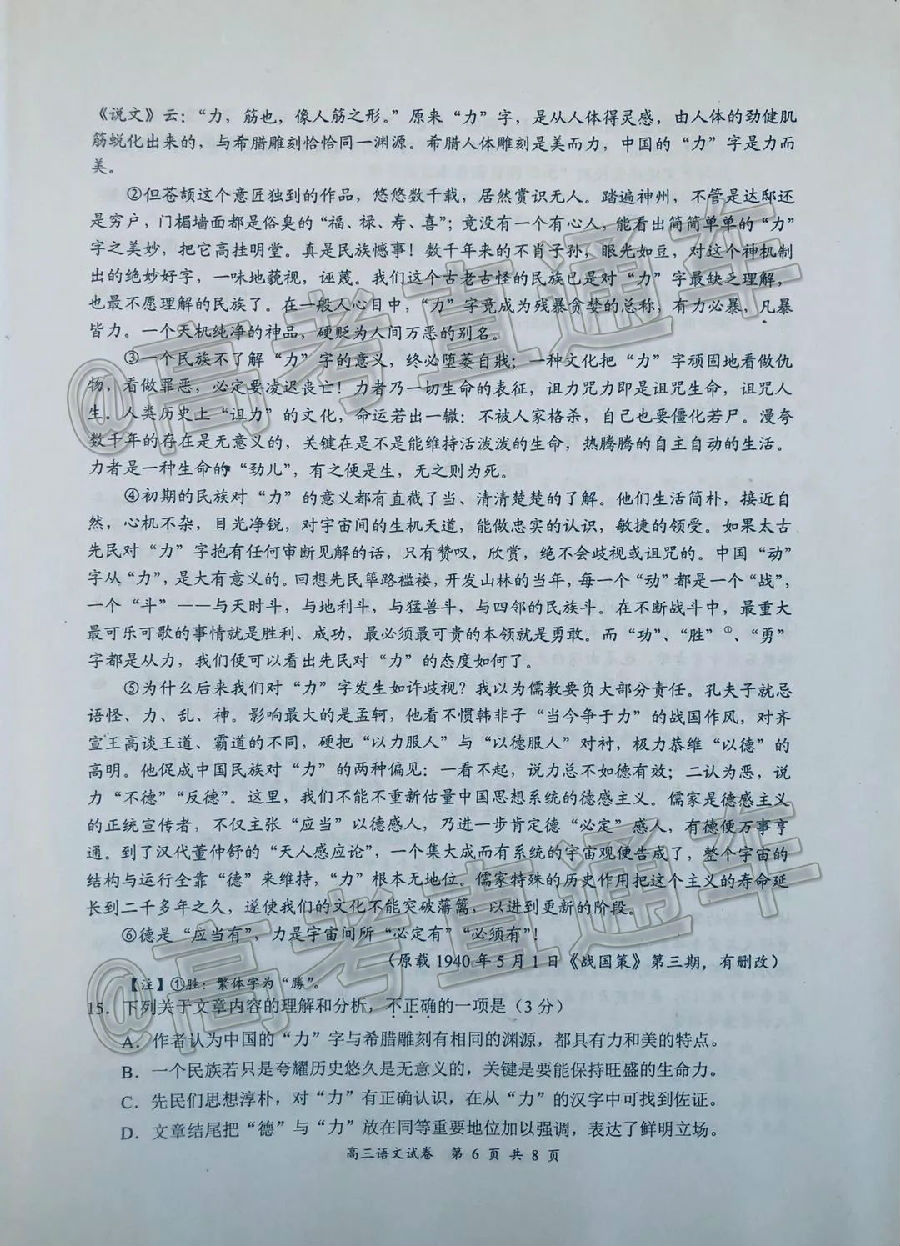 《说文》云：“力，筋也，像人筋之形。”原来“力”字，是从人体得灵感，由人体的劲健肌
筋蜕化出来的，与希腊雕刻恰恰同一渊源。希腊人体雕刻是美而力，中国的“力”字是力而
美。
②但苍颉这个意匠独到的作品，悠悠数千载，居然赏识无人。踏遍神州，不管是达邸还
是穷户，门楣墙面都是俗臭的“福、禄、寿、喜”；竟没有一个有心人，能看出简简单单的“力”
字之美妙，把它高挂明堂。真是民族憾事！数千年来的不肖子孙，眼光如豆，对这个神机制
出的绝妙好字，一味地藐视，诬蔑。我们这个古老古怪的民族已是对“力”字最缺乏理解，
也最不愿理解的民族了。在一般人心目中，“力”字竟成为残暴贪婪的总称，有力必暴，凡暴
皆力。一个天机纯净的神品，硬贬为人间万恶的别名。
③一个民族不了解“力”字的意义，终必堕萎自戕；一种文化把“力”字顽固地看做仇
物，看做罪恶，必定要凌迟丧亡！力者乃一切生命的表征，诅力咒力即是诅咒生命，诅咒人
生。人类历史上“诅力”的文化，命运若出一辙：不被人家格杀，自己也要僵化若尸。漫夸
数千年的存在是无意义的，关键在是不是能维持活泼泼的生命，热腾腾的自主自动的生活。
力者是一种生命的“劲儿”，有之便是生，无之则为死。
④初期的民族对“力”的意义都有直截了当、清清楚楚的了解。他们生活简朴，接近自
然，心机不杂，目光净锐，对宇宙间的生机天道，能做忠实的认识，敏捷的领受。如果太古
先民对“力”字抱有任何审断见解的话，只有赞叹，欣赏，绝不会歧视或诅咒的。中国“动”
字从“力”，是大有意义的。回想先民筚路褴褛，开发山林的当年，每一个“动”都是一个“战”，
一个“斗”——与天时斗，与地利斗，与猛兽斗，与四邻的民族斗。在不断战斗中，最重大
最可乐可歌的事情就是胜利、成功，最必须最可贵的本领就是勇敢。而“功”、“胜”①、“勇”
字都是从力，我们便可以看出先民对“力”的态度如何了。
⑤为什么后来我们对“力”字发生如许歧视？我以为儒教要负大部分责任。孔夫子就忌
语怪、力、乱、神。影响最大的是孟轲，他看不惯韩非子“当今争于力”的战国作风，对齐
宣王高谈王道、霸道的不同，硬把“以力服人”与“以德服人”对衬，极力恭维“以德”的
高明。他促成中国民族对“力”的两种偏见：一看不起，说力总不如德有效；二认为恶，说
力“不德”“反德”。这里，我们不能不重新估量中国思想系统的德感主义。儒家是德感主义
的正统宣传者，不仅主张“应当”以德感人，乃进一步肯定德“必定”感人，有德便万事亨
通。到了汉代董仲舒的“天人感应论”，一个集大成而有系统的宇宙观便告成了，整个宇宙的
结构与运行全靠“德”来维持，“力”根本无地位。儒家特殊的历史作用把这个主义的寿命延
长到二千多年之久，遂使我们的文化不能突破藩篱，以进到更新的阶段。
⑥德是“应当有”，力是宇宙间所“必定有”“必须有”！
（原载 1940 年 5 月 1 日《战国策》第三期，有删改）
【注】①胜：繁体字为“勝”。
15．下列关于文章内容的理解和分析，不正确的一项是（3 分）
A．作者认为中国的“力”字与希腊雕刻有相同的渊源，都具有力和美的特点。
B．一个民族若只是夸耀历史悠久是无意义的，关键是要能保持旺盛的生命力。
C．先民们思想淳朴，对“力”有正确认识，在从“力”的汉字中可找到佐证。
D．文章结尾把“德”与“力”放在同等重要地位加以强调，表达了鲜明立场。
高三语文试卷 第 6 页 共 8 页
@高考直通车
@高考直通车